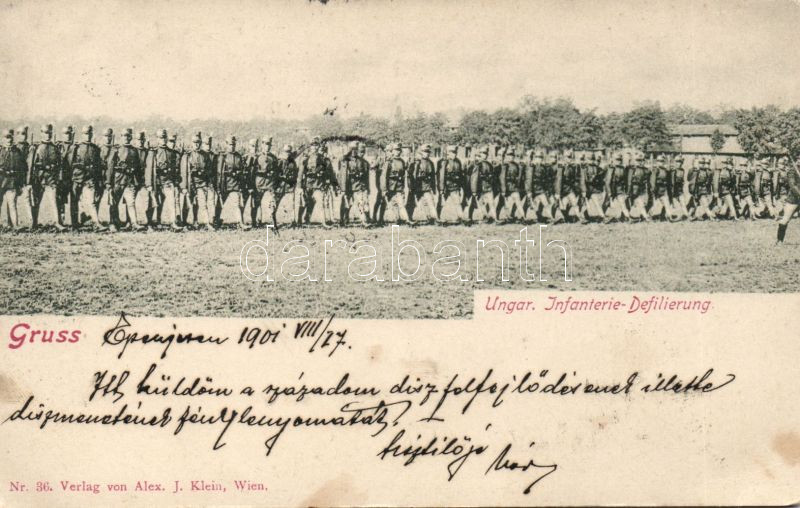 darabanth
Ungar. Infanterie-Defilierung
Gruss Eperjesen 1901 VIII/27.
Itt küldöm a századom disz felfejlődésének illetve
diszmenetének fényllenyomatát.
tisztelője
Nr. 36. Verlag von Alex. J. Klein, Wien.